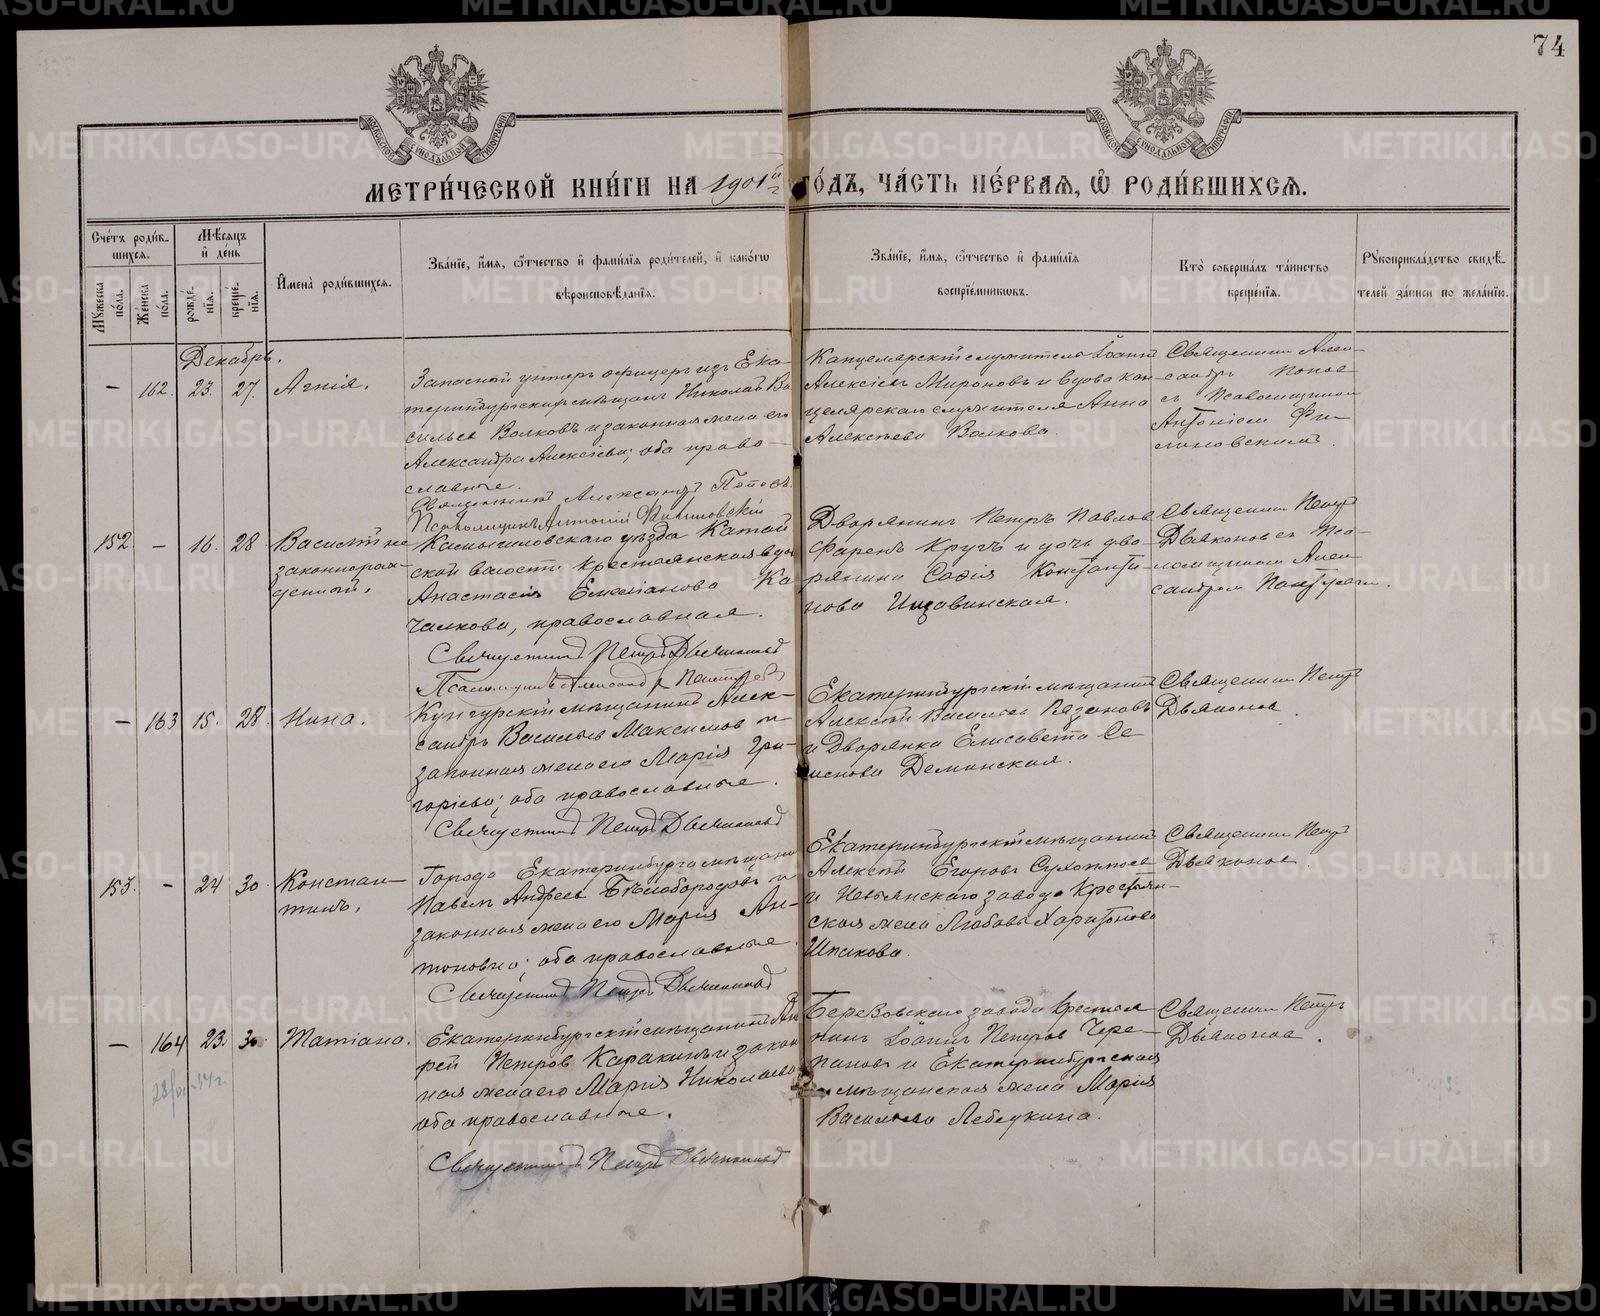 74
МОСКОВСКОЙ СѴНОДАЛЬНОЙ ТИПОГРАФІИ
МОСКОВСКОЙ СѴНОДАЛЬНОЙ ТИПОГРАФІИ
МЕТРИ́ЧЕСКОЙ КНИ́ГИ НА 1901й ГО́ДЪ, ЧА́СТЬ ПЕ́РВАЯ, Ѽ РОДИ́ВШИХСЯ.
Сче́тъ роди́в-
шихся.
Мꙋжеска по́ла.
Же́нска по́ла.
Мѣ́сяцъ
и҆ де́нь
рожде́-
нїѧ.
креще́-
нїѧ.
И҆мена̀ роди́вшихся.
Зва́нїе, и҆́мя, ѻ҆́тчество и҆ фами́лїя роди́телей, и҆ како́гѡ
вѣроисповѣ́данїѧ.
Зва́нїе, и҆́мя, ѻ҆́тчество и҆ фами́лїя
воспрїе́мникѡвъ.
Кто̀ соверша́лъ та́инство
креще́нїѧ.
Рꙋкоприкла́дство свидѣ́-
телей за́писи по жела́нїю.
Декабрь.
– 162. 23. 27. Агнія.
Запасной унтеръ офицеръ изъ Ека-
теринбургскихъ мѣщанъ Николай Ва
сильевъ Волковъ и законная жена его
Александра Алексѣева; оба право-
славные.
Священникъ Александръ Поповъ.
Псаломщикъ Антоній Филиповскій
Канцелярскій служитель Іоаннъ
Алексѣевъ Мироновъ и вдова кан-
целярскаго служителя Анна
Алексѣева Волкова.
Священникъ Алек-
сандръ Попов
съ Псаломщикомъ
Антоніемъ Фи-
липовскимъ.
152. – 16. 28 Василій не
законнорож-
денный.
Камышловскаго уѣзда Катай
ской волости крестьянская вдова
Анастасія Емеліанова Ка
чалкова, православная.
Священникъ Петръ Дьяконовъ
Псаломщикъ Александръ Пантелеевъ
Дворянинъ Петръ Павловъ
Фаренъ Кругъ и дочь дво-
рянина Софія Константи-
нова
Священникъ Петръ
Дьяконовъ съ Пса-
ломщикомъ Алек
сандромъ
– 163 15. 28. Нина.
Кунгурскій мѣщанинъ Алек-
сандръ Васильевъ Максимовъ и
законная жена его Марія Гри-
горіева; оба православные.
Священникъ Петръ Дьяконовъ
Екатеринбургскій мѣщанинъ
Алексѣй Васильевъ Рязановъ
и дворянка Елисавета Се
менова Деминская.
Священникъ Петръ
Дьяконовъ.
153. – 24 30. Констан-
тинъ.
Города Екатеринбурга мѣщанинъ
Павелъ Андреевъ Бѣлобородовъ и
законная жена его Марія Ан-
тоновна; оба православные.
Священникъ Петръ Дьяконовъ
Екатеринбургскій мѣщанинъ
Алексѣй Егоровъ
и Невьянскаго завода Крестьян-
ская жена Любовь Харитонова
Шпакова.
Священникъ Петръ
Дьяконовъ
– 164 23. 30. Татіана.
Екатеринбургскій мѣщанинъ Ан
рей Петровъ Каракинъ и закон
ная жена его Марія Николаева
оба православные.
Священникъ Петръ Дьяконовъ
Березовскаго завода крестья
нинъ Іоаннъ Петровъ Чере-
пановъ и Екатеринбургская
мѣщанская жена Марія
Васильева Лебедкина.
Священникъ Петръ
Дьяконовъ.
METRIKI.GASO-URAL.RU